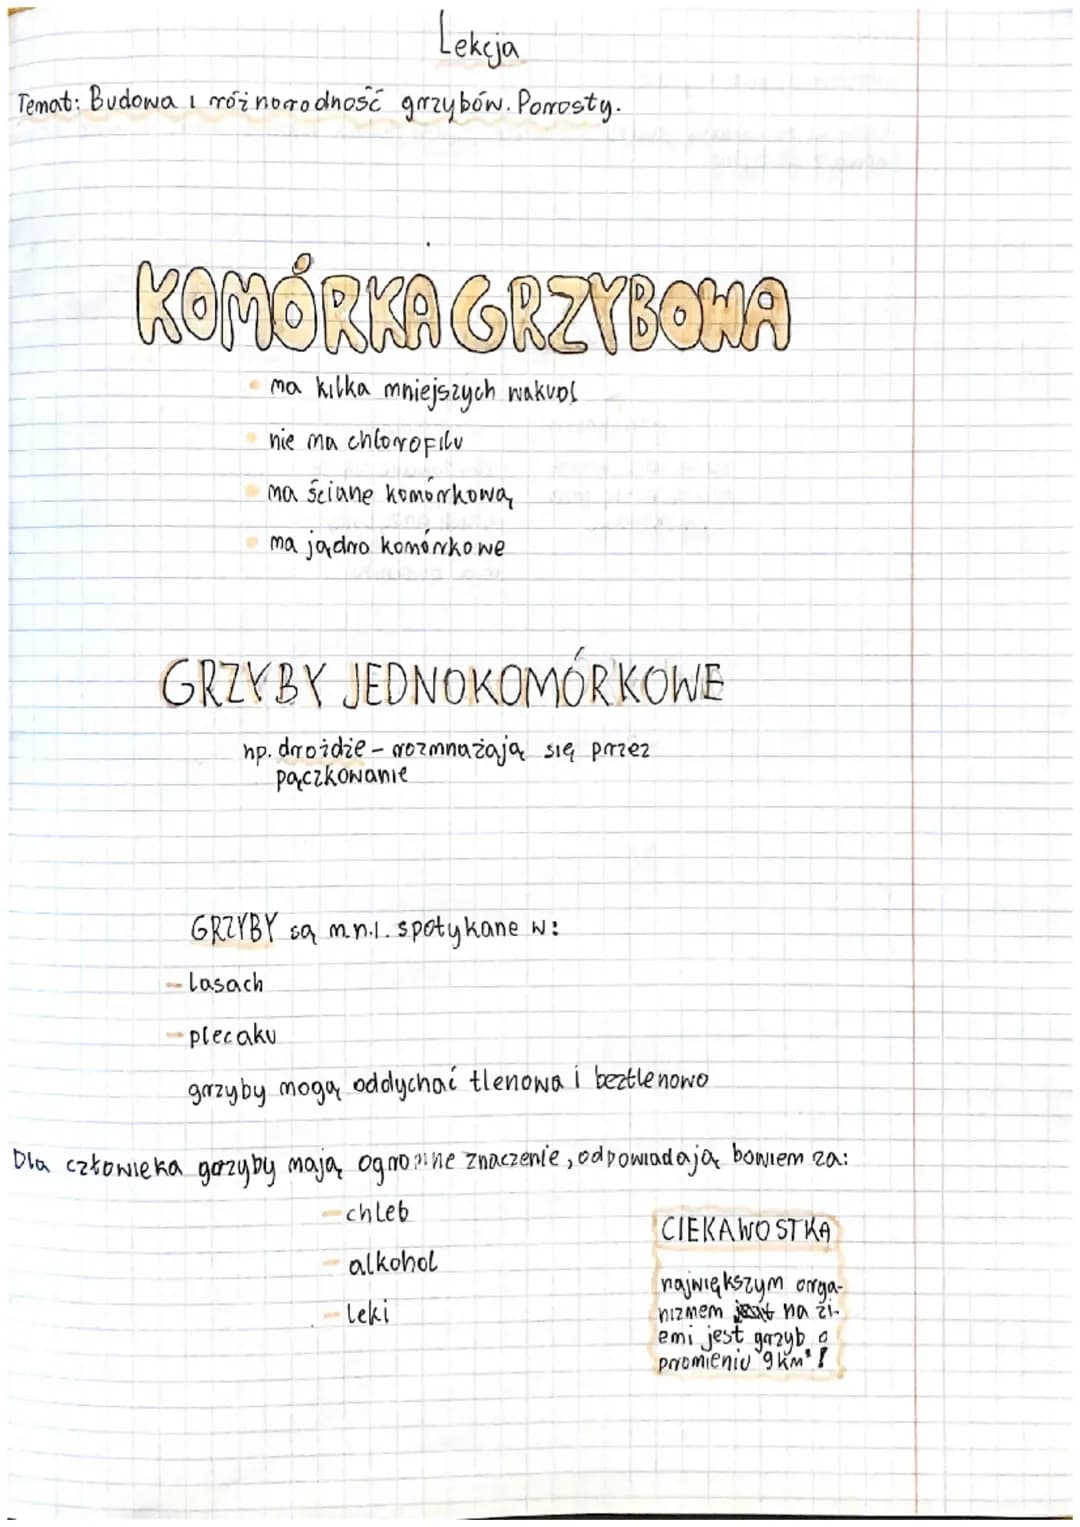 Lekcja
Temat: Budowa i różnorodność grzybów. Porosty.
KOMÓRKA GRZYBOWA
• ma kilka mniejszych wakuol
• nie ma chlorofilu
• ma ścianę komórkową
• ma jądro komórkowe
GRZYBY JEDNOKOMÓRKOWE
np. drożdże - rozmnażają się przez
pączkowanie
GRZYBY są m.n.i. spotykane w:
- lasach
- plecaku
grzyby mogą oddychać tlenowa i beztlenowo
Dla człowieka grzyby mają ogromne znaczenie, odpowiadają bowiem za:
- chleb
- alkohol
- leki
CIEKAWOSTKA
największym orga-
nizmem na zi-
emi jest grzyb o
promieniu 9 km²!